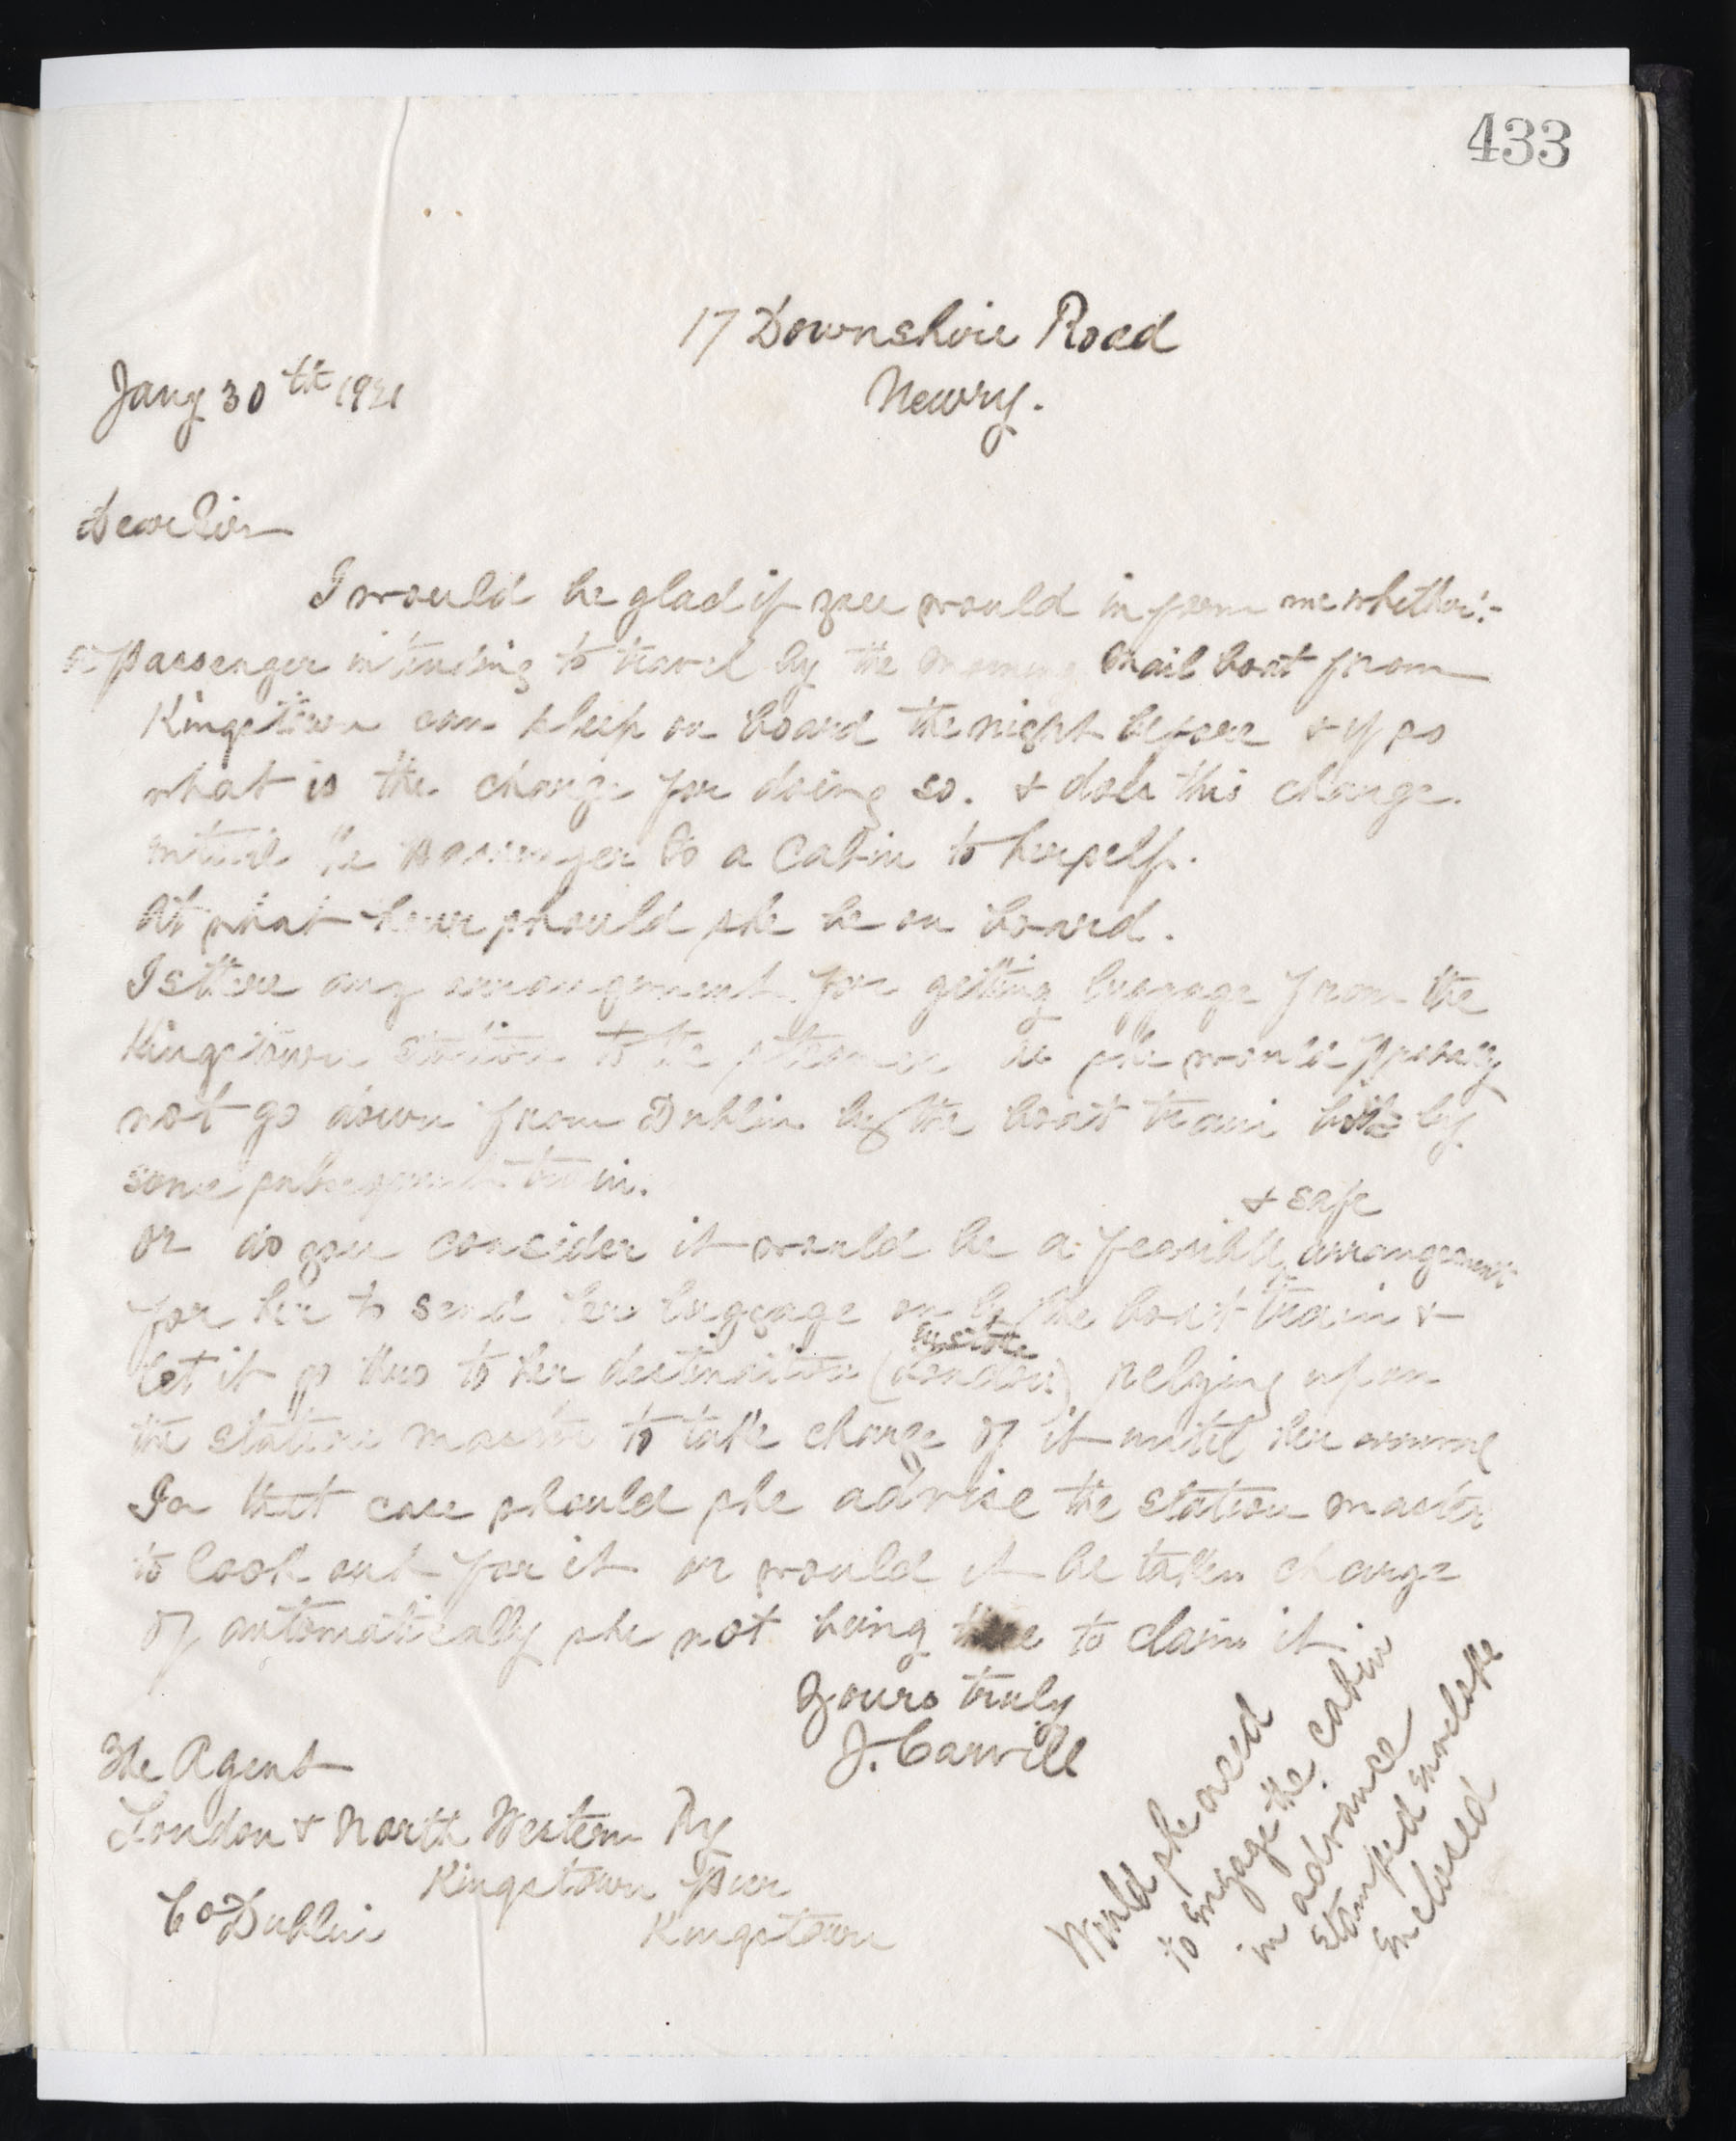 433
17 Downshire Road
Newry.
Jany 30th 1921
Dear Sir
I would be glad if you would inform me whether:-
a passenger intending to travel by the morning mail boat from
Kingstown can sleep on board the night before & if so
what is the charge for doing so. & does this charge
entitle the passenger to a Cabin to herself.
At what hour should she be on board.
Is there any arrangement for getting luggage from the
Kingstown station to the steamer as she would possibly
not go down from Dublin by the boat train but by
some subsequent train.
& safe
or do you consider it would be a feasible arrangement
for her to send her luggage on by the boat train &
Euston
let it go thus to her destination (London) relying upon
the station master to take charge of it until her arrival
In that case should she advise the station master
to look out for it or would it be taken charge
of automatically she not being there to claim it.
Yours truly
J. Carvill
The Agent
London & North Western Ry
Kingstown Pier
Kingstown
Co Dublin
Would she need
to engage the cabin
in advance
Stamped envelope
Enclosed